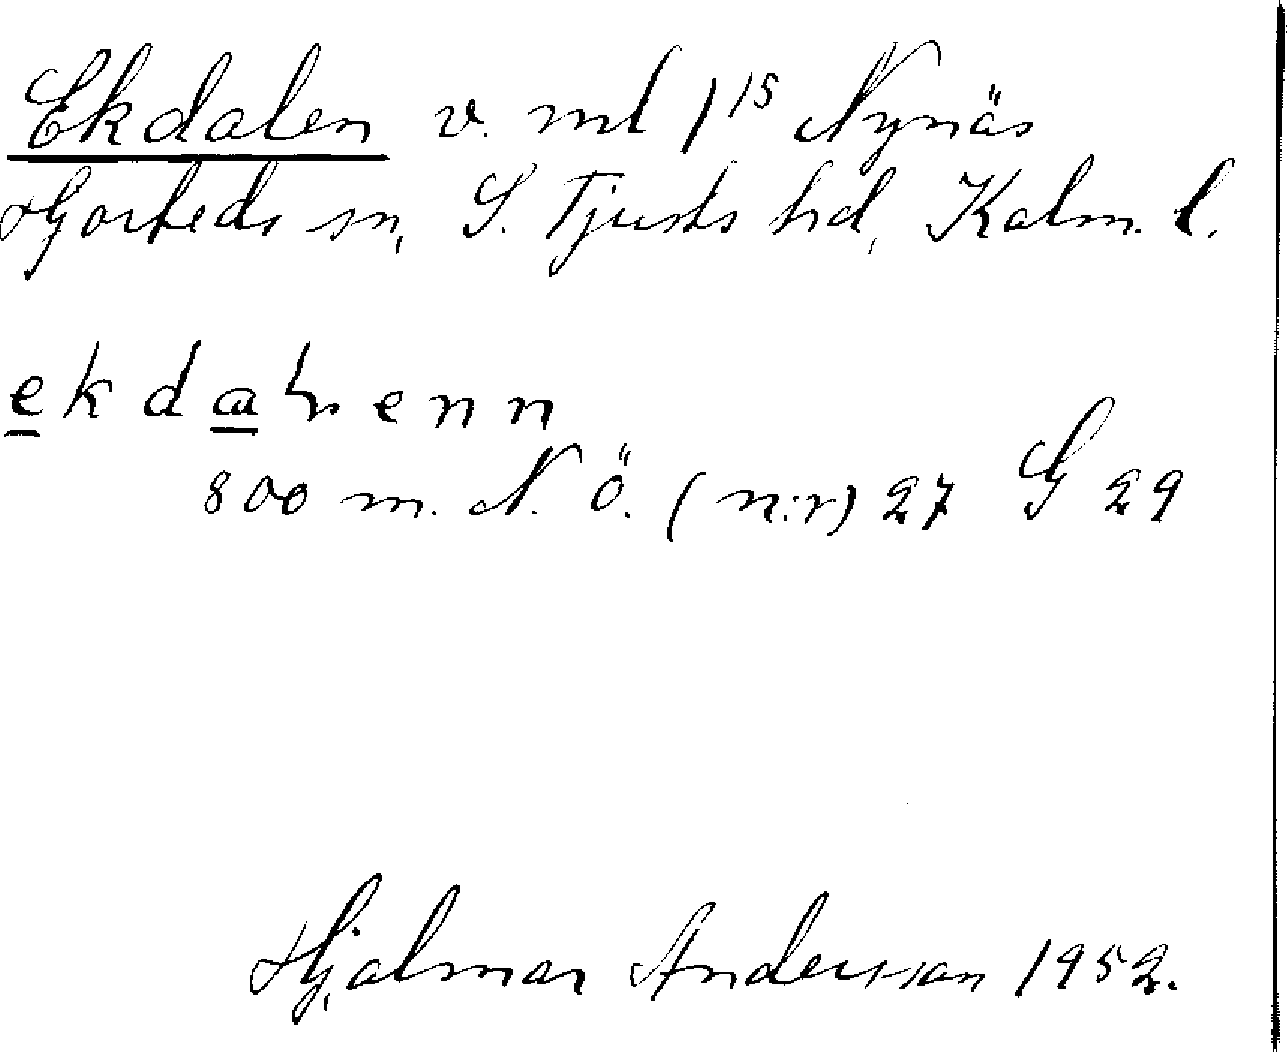 Ekdalen v. mtl 1 15 Nynäs
Hjorteds sn, S. Tjusts hd, Kalm. l.
ekdalenn
800 m. N. Ö. (n:r) 27 G 29
Hjalmar Andersson 1952.